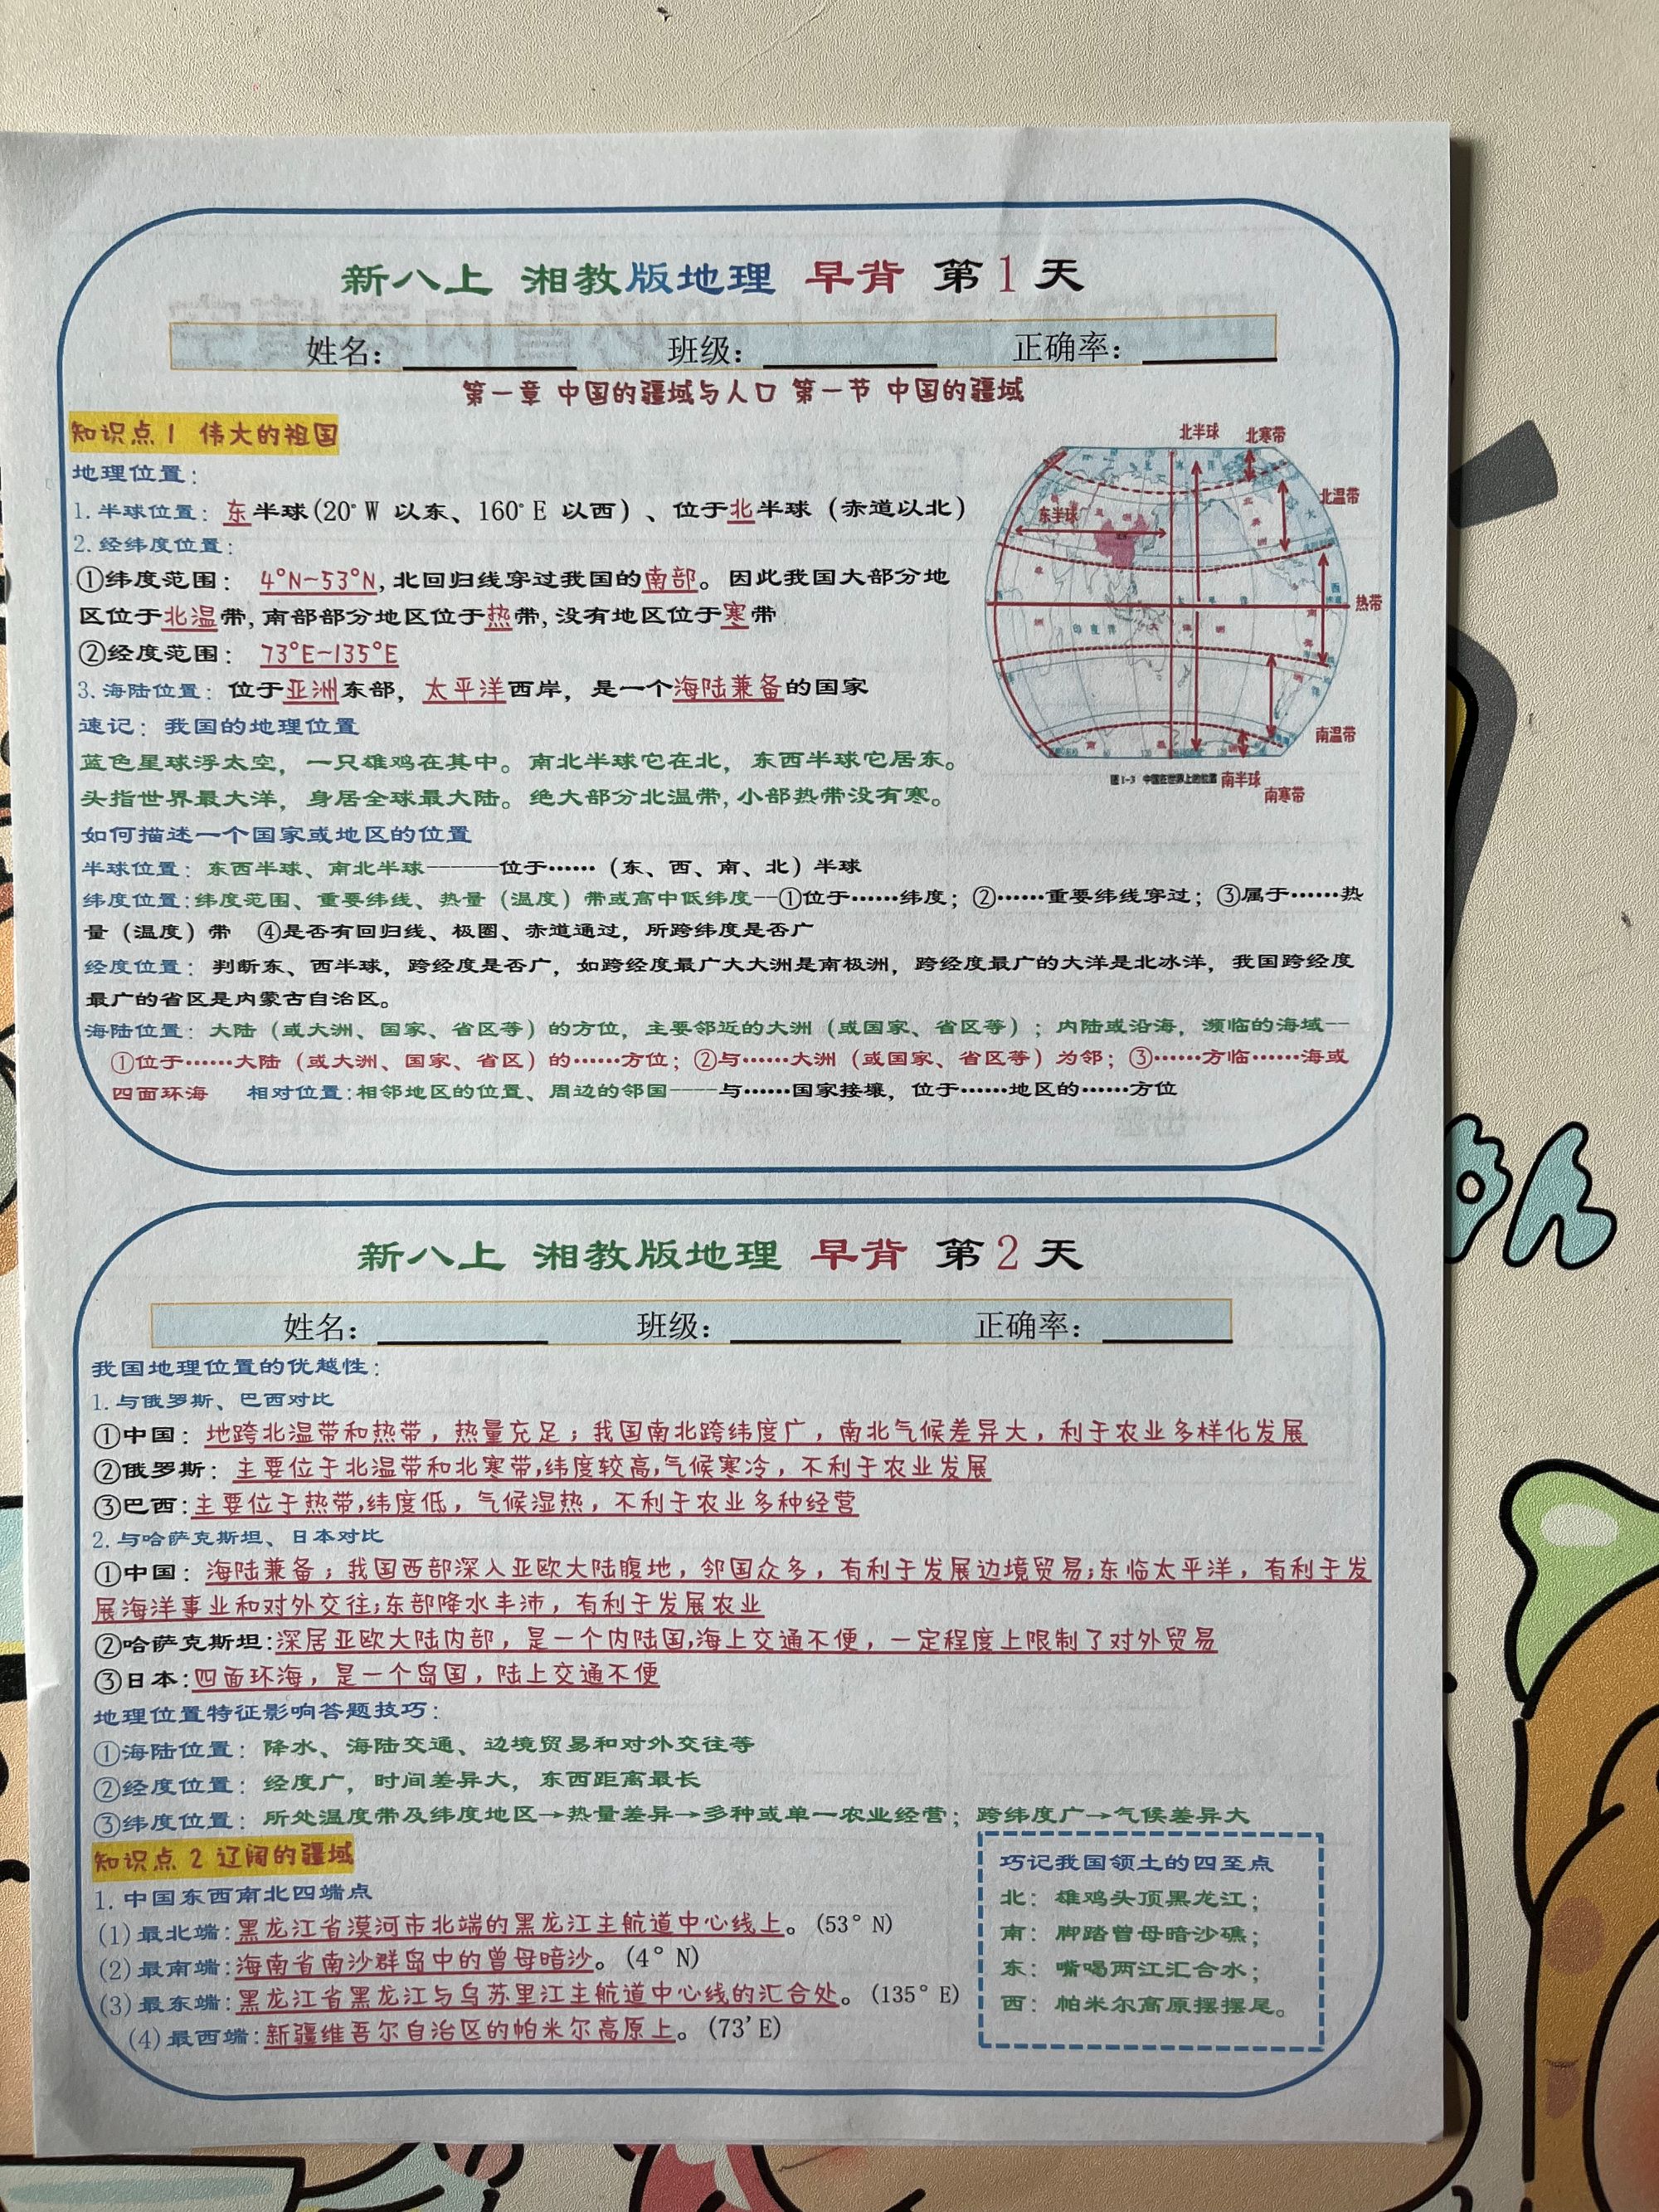 新八上 湘教版地理 早背 第1天
姓名： 班级： 正确率：
第一章 中国的疆域与人口 第一节 中国的疆域
知识点1 伟大的祖国
地理位置：
1.半球位置：东半球(20°W 以东、160°E 以西)、位于北半球（赤道以北）
2.经纬度位置：
①纬度范围： 4°N~53°N,北回归线穿过我国的南部。因此我国大部分地
区位于北温带,南部部分地区位于热带,没有地区位于寒带
②经度范围： 73°E~135°E
3.海陆位置：位于亚洲东部，太平洋西岸，是一个海陆兼备的国家
速记：我国的地理位置
蓝色星球浮太空，一只雄鸡在其中。南北半球它在北，东西半球它居东。
头指世界最大洋，身居全球最大陆。绝大部分北温带,小部热带没有寒。
北半球 北寒带
北温带
东半球
热带
南温带
图1-3 中国在世界上的位置 南半球
南寒带
如何描述一个国家或地区的位置
半球位置：东西半球、南北半球------位于……（东、西、南、北）半球
纬度位置:纬度范围、重要纬线、热量（温度）带或高中低纬度--①位于……纬度；②……重要纬线穿过；③属于……热
量（温度）带 ④是否有回归线、极圈、赤道通过，所跨纬度是否广
经度位置：判断东、西半球，跨经度是否广，如跨经度最广大大洲是南极洲，跨经度最广的大洋是北冰洋，我国跨经度
最广的省区是内蒙古自治区。
海陆位置：大陆（或大洲、国家、省区等）的方位，主要邻近的大洲（或国家、省区等）；内陆或沿海，濒临的海域--
①位于……大陆（或大洲、国家、省区）的……方位；②与……大洲（或国家、省区等）为邻；③……方临……海或
四面环海 相对位置:相邻地区的位置、周边的邻国----与……国家接壤，位于……地区的……方位
新八上 湘教版地理 早背 第2天
姓名： 班级： 正确率：
我国地理位置的优越性：
1.与俄罗斯、巴西对比
①中国：地跨北温带和热带，热量充足；我国南北跨纬度广，南北气候差异大，利于农业多样化发展
②俄罗斯：主要位于北温带和北寒带,纬度较高,气候寒冷，不利于农业发展
③巴西:主要位于热带,纬度低，气候湿热，不利于农业多种经营
2.与哈萨克斯坦、日本对比
①中国：海陆兼备；我国西部深入亚欧大陆腹地，邻国众多，有利于发展边境贸易;东临太平洋，有利于发
展海洋事业和对外交往;东部降水丰沛，有利于发展农业
②哈萨克斯坦:深居亚欧大陆内部，是一个内陆国,海上交通不便，一定程度上限制了对外贸易
③日本:四面环海，是一个岛国，陆上交通不便
地理位置特征影响答题技巧：
①海陆位置：降水、海陆交通、边境贸易和对外交往等
②经度位置：经度广，时间差异大，东西距离最长
③纬度位置：所处温度带及纬度地区→热量差异→多种或单一农业经营；跨纬度广→气候差异大
知识点2 辽阔的疆域
1.中国东西南北四端点
(1)最北端:黑龙江省漠河市北端的黑龙江主航道中心线上。(53°N)
(2)最南端:海南省南沙群岛中的曾母暗沙。(4°N)
(3)最东端:黑龙江省黑龙江与乌苏里江主航道中心线的汇合处。(135°E)
(4)最西端:新疆维吾尔自治区的帕米尔高原上。(73'E)
巧记我国领土的四至点
北：雄鸡头顶黑龙江；
南：脚踏曾母暗沙礁；
东：嘴喝两江汇合水；
西：帕米尔高原摆摆尾。